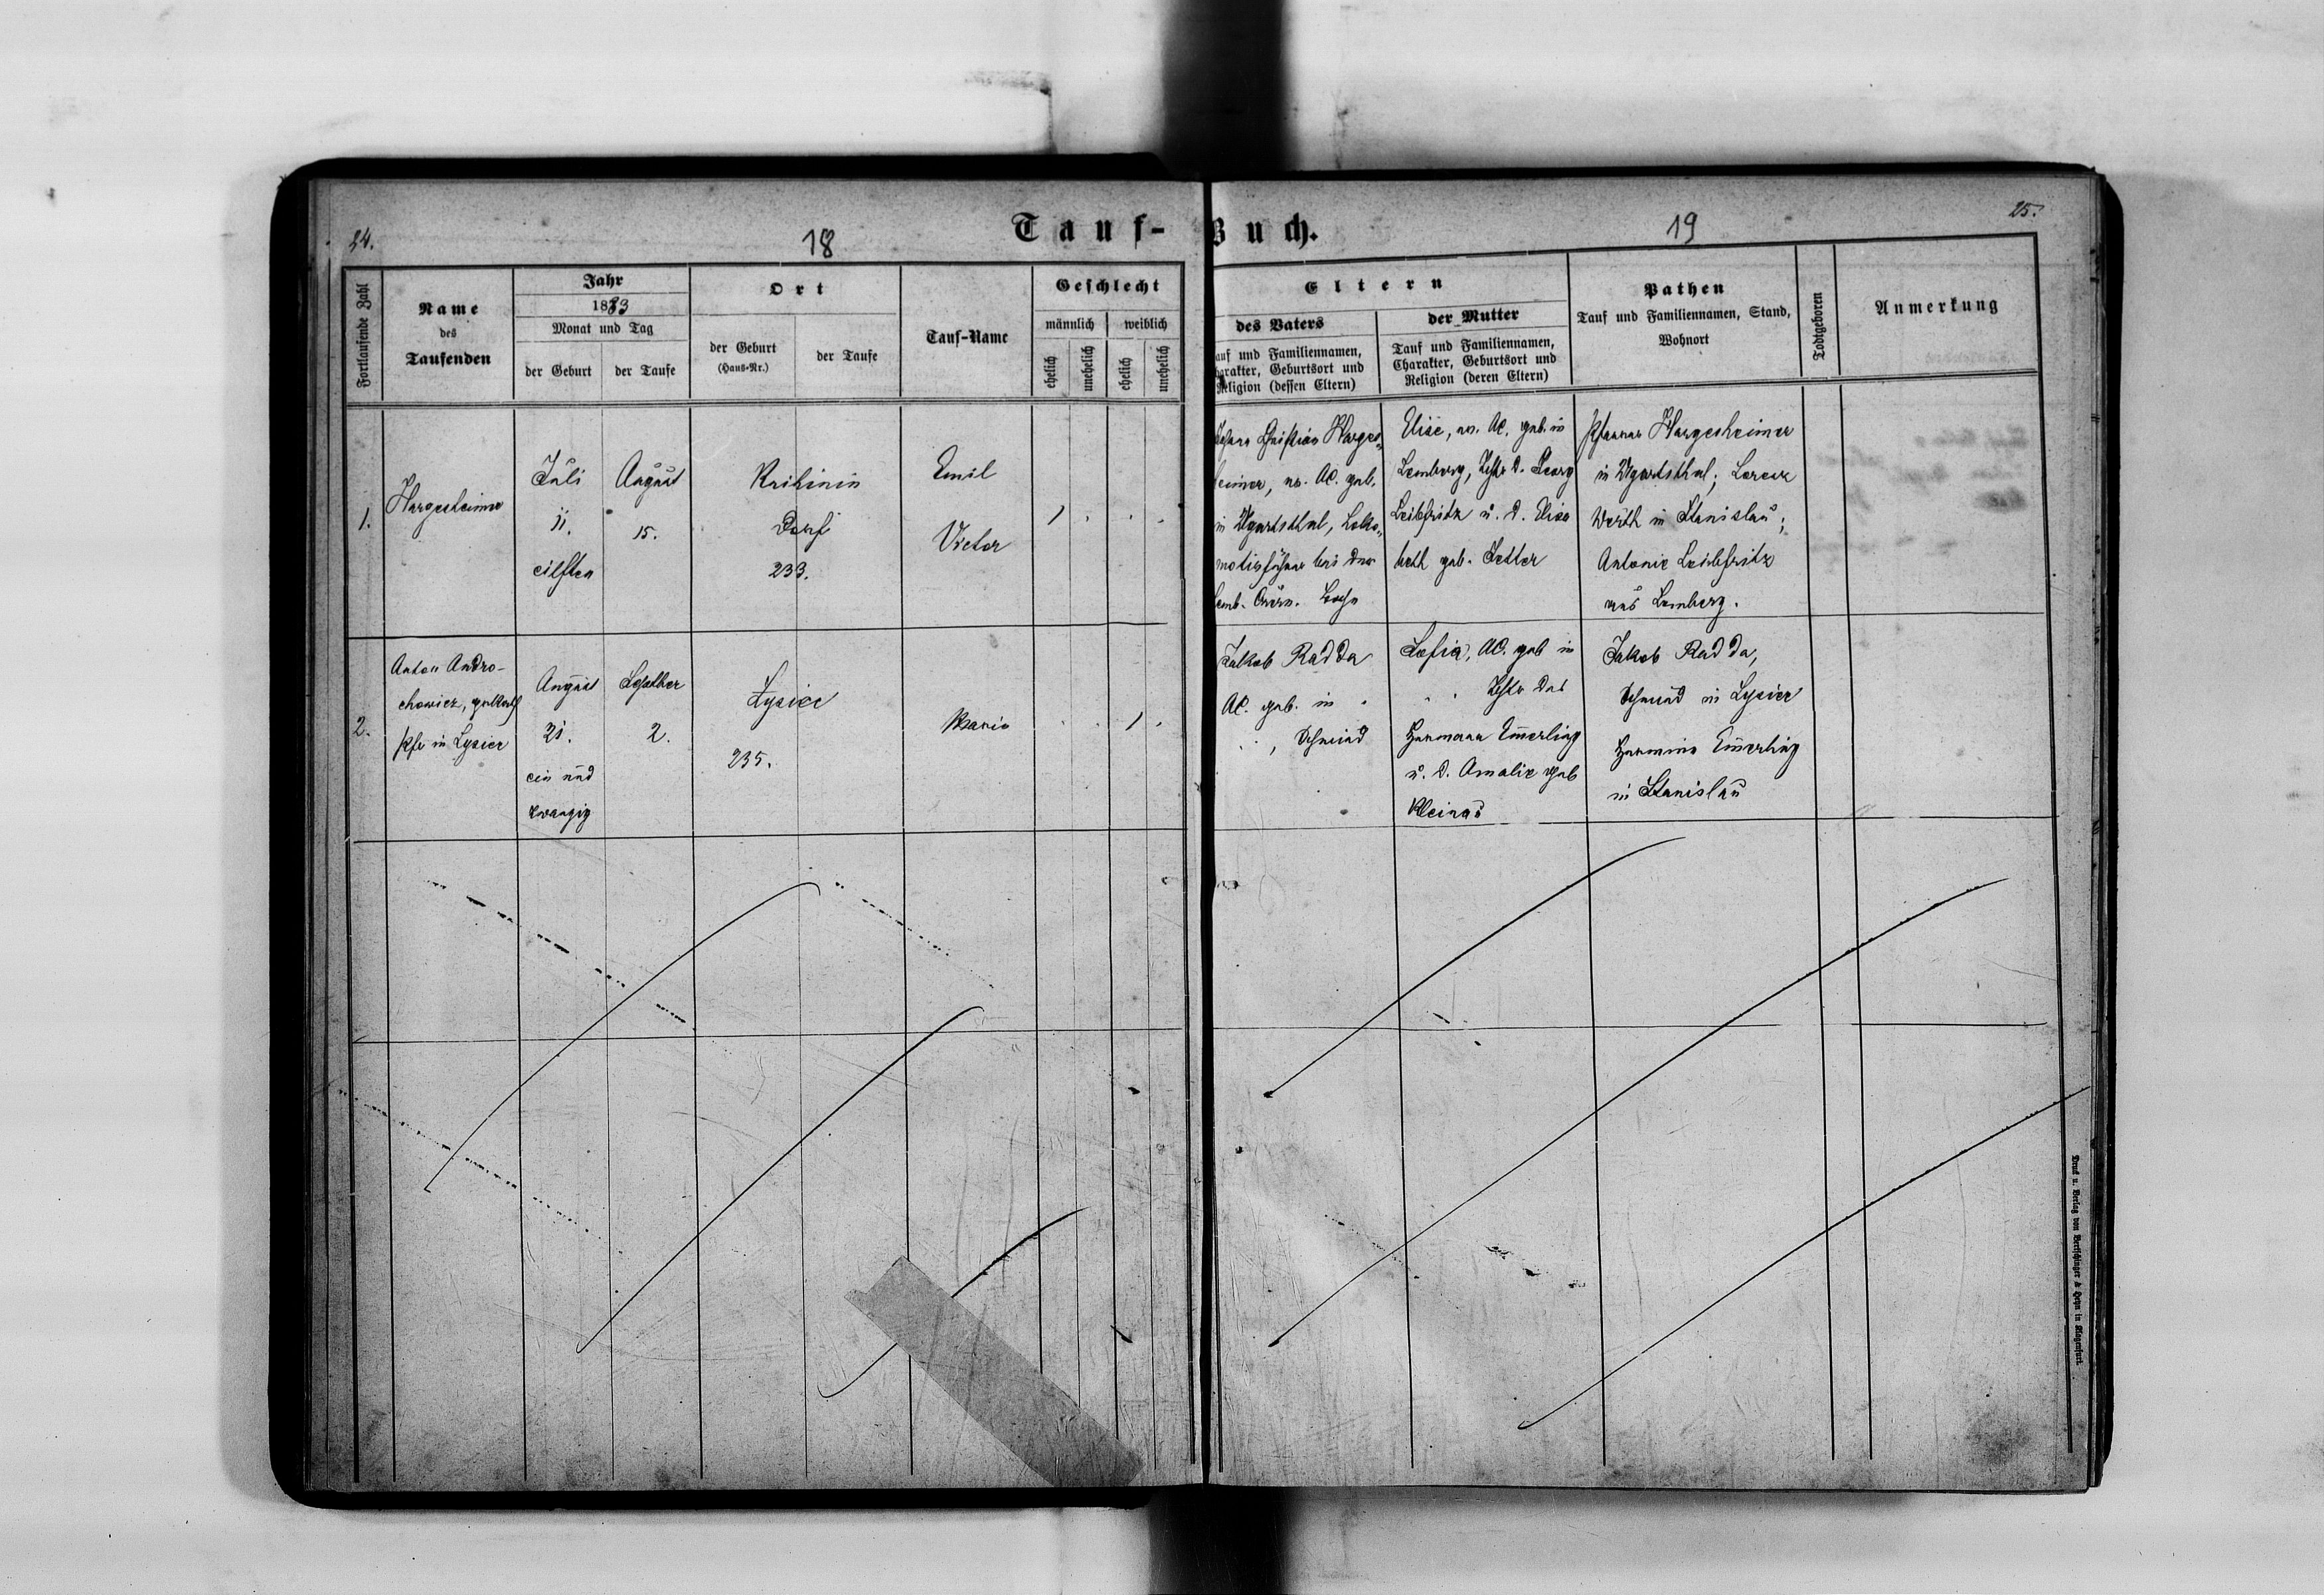 24.
18
Tauf-
Buch.
19
25.
Fortlaufende Zahl
Name
des
Taufenden
Jahr
1883
Monat und Tag
der Geburt
der Taufe
Ort
der Geburt
(Haus-Nr.)
der Taufe
Tauf-Name
Geschlecht
männlich
weiblich
ehelich
unehelich
ehelich
unehelich
Eltern
des Vaters
auf und Familiennamen,
harakter, Geburtsort und
Religion (dessen Eltern)
der Mutter
Tauf und Familiennamen,
Charakter, Geburtsort und
Religion (deren Eltern)
Pathen
Tauf und Familiennamen, Stand,
Wohnort
Todtgeboren
Anmerkung
1.
Hargesheimer
Juli
11.
eilften
August
15.
Knihinin
Dorf
233.
Emil
Victor
1
Johann Christian Harges-
heimer, ev. AC. geb.
in Ugartsthal, Loko-
motivführer bei der
Lemb. Czern. Bahn
Elise, ev. AC. geb. in
Lemberg, Tchtr d. Georg
Leibfritz u. d. Elisa
beth geb. Letter
Pfarrer Hargesheimer
in Ugartsthal; Lorenz
Werth in Stanislau;
Antonie Leibfritz
aus Lemberg.
2.
Anton Andro-
chowicz,
Pfr in Lysiec
August
21.
ein und
zwanzig
Septber
2.
Lysiec
235.
Marie
1
Jakob Radda
AC. geb. in
Schmied
Sofia, AC. geb in
Tchtr des
Hermann Emerling
u. d. Amalie geb
Kleinau
Jakob Radda,
Schmied in Lysiec
Hermine Emerling
in Stanislau
Druck u. Verlag von Bertschinger & Heyn in Klagenfurt.